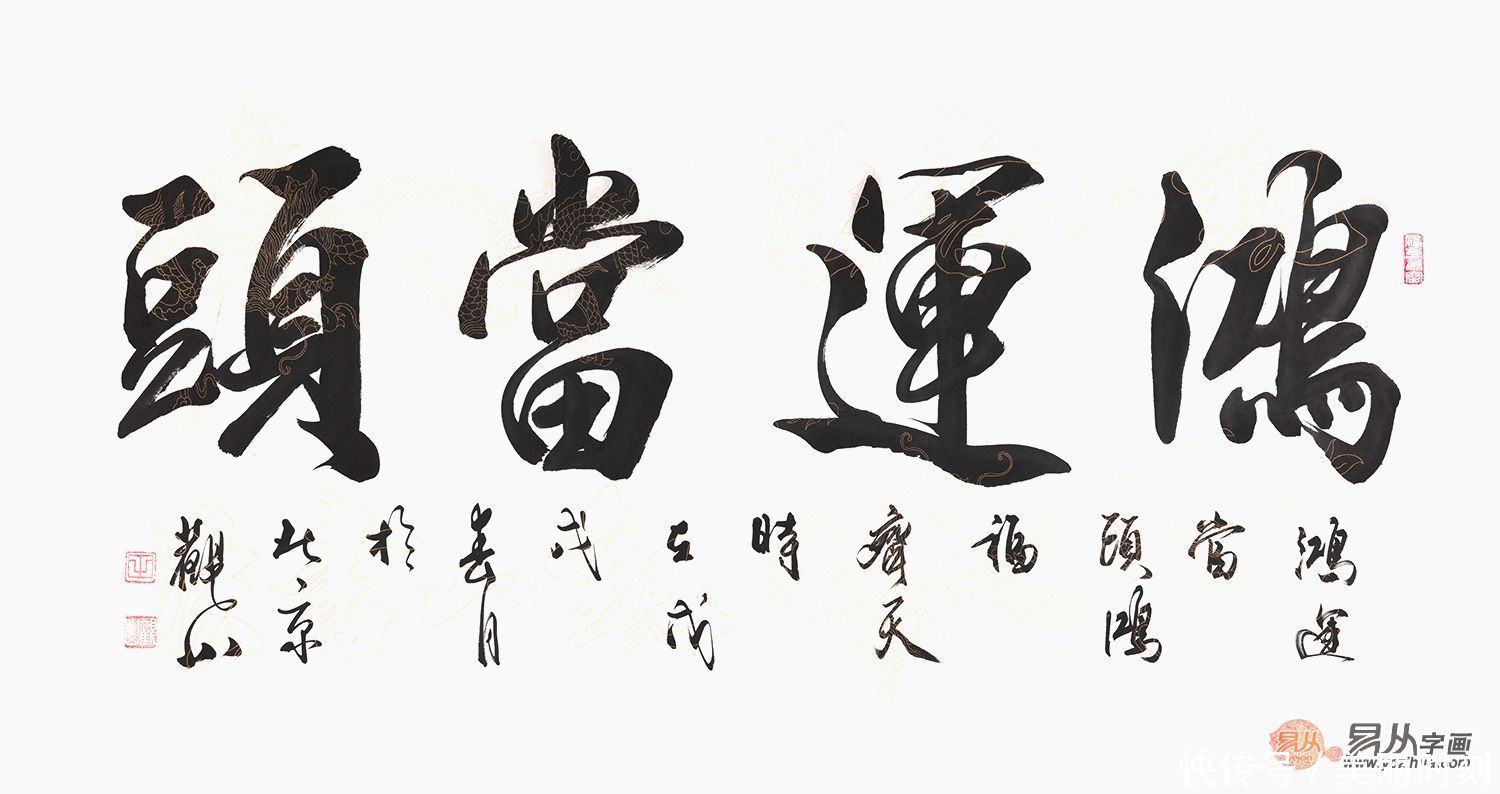 鴻運當頭
鴻運
當
頭鴻
福
齊天
時
在戊
戌
春月
於
北京
觀山
易从字画
www.yczihua.com
快传号 / 美丽时刻